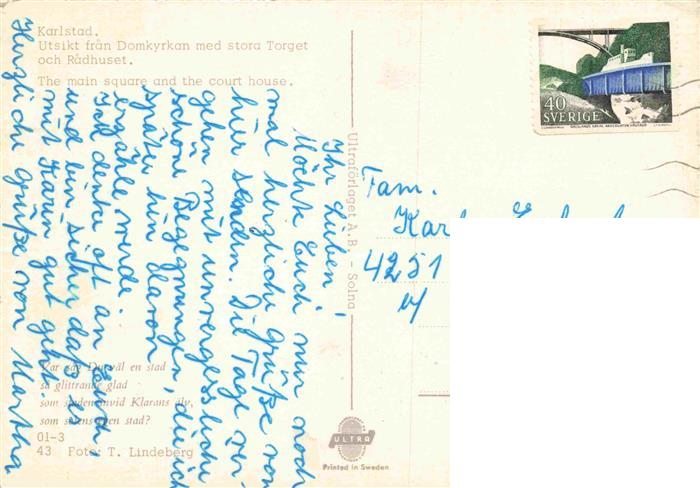 Karlstad.
Utsikt från Domkyrkan med stora Torget
och Rådhuset.
The main square and the court house.
Ihr Lieben!
Möchte Euch nur noch
mal herzliche Grüße von
hier senden. Die Tage ver-
gehen mit unvergessliche
schöne Begegnungen, die ich
später hin davon
erzähle werde.
Ich denke oft an Euch
und bin sicher daß es
mit Karin gut geht.
Herzliche Grüße von Martha
Har såg Du väl en stad
så glittrande glad
som staden invid Klarans älv,
som solens egen stad?
01-3
43 Foto: T. Lindeberg
Ultraförlaget A.B. - Solna
ULTRA
Printed in Sweden
40
SVERIGE
Fam.
4251